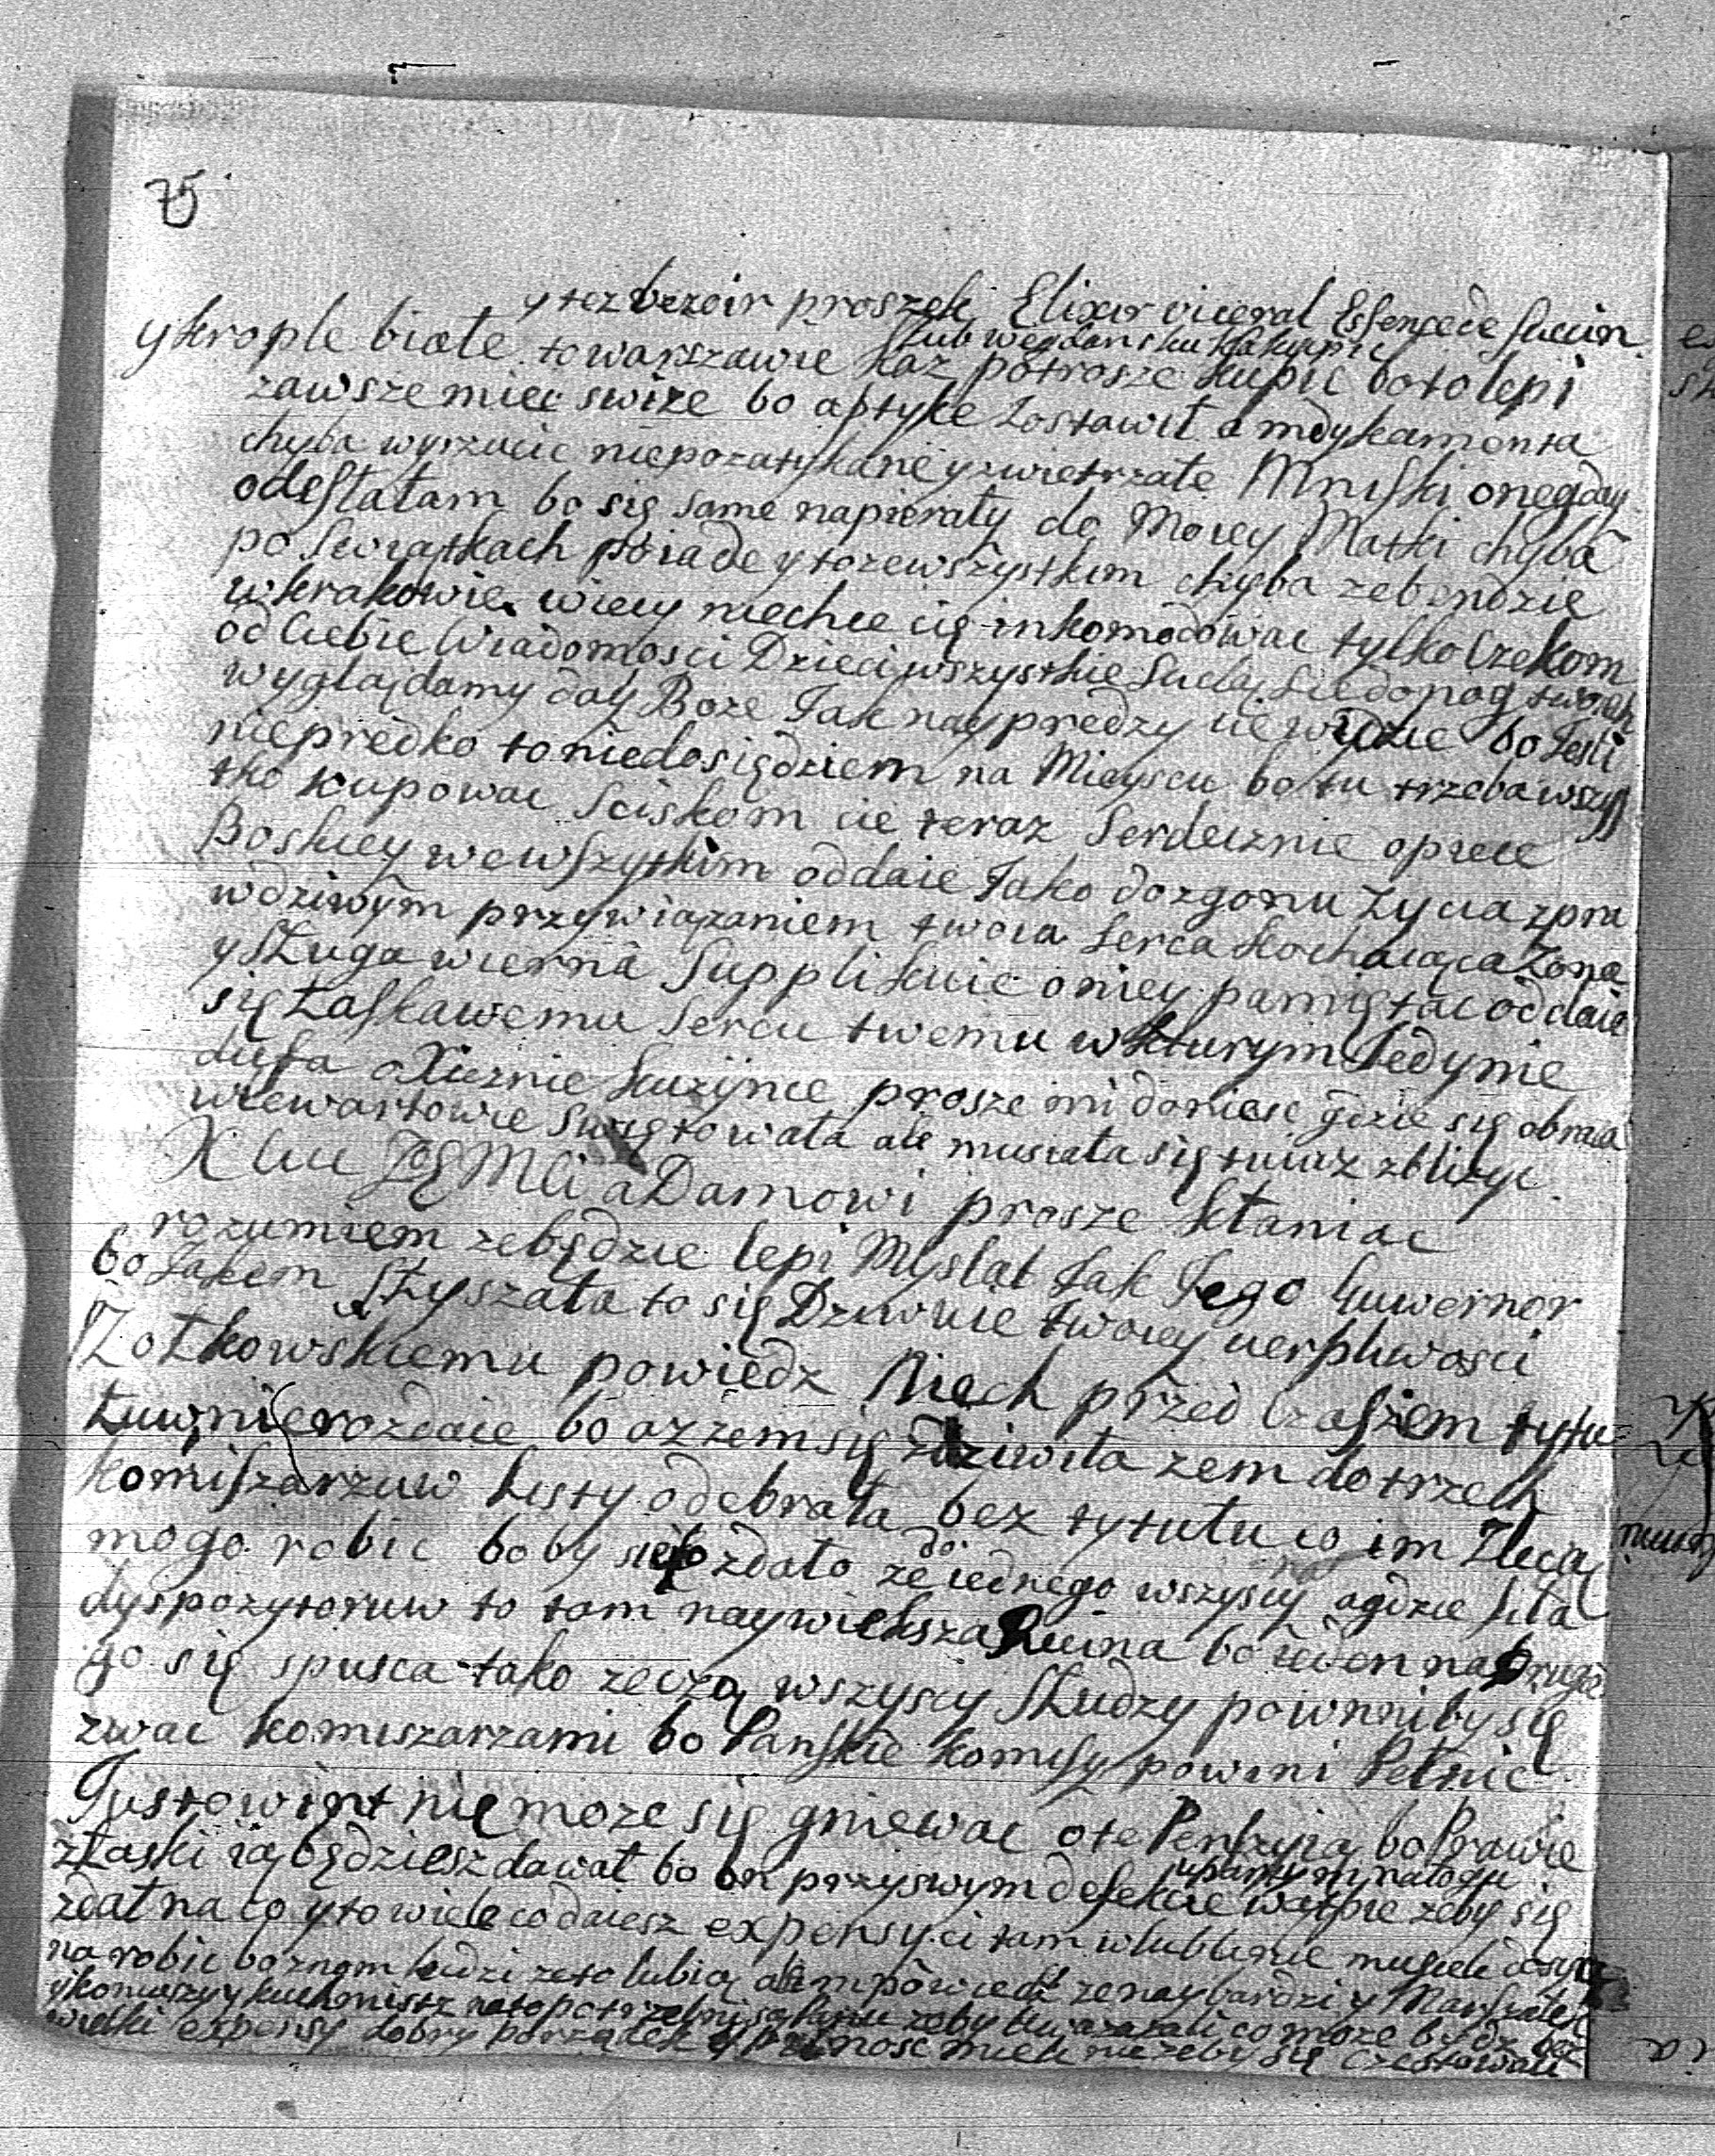 75
y tez bezoir proszek Elixir viceral Essencede succin
y krople białe to warszawie każ potrosze kupic bo to lepi
lub wegdansku zakupic
zawsze miec swize bo aptyke zostawił a mdykamenta
chyba wyrzucic niepozatykane y zwietrzałe Mniski onegday
odesłałam bo się same napierały do Moiey Matki chyba
po swiątkach poiade y to ze wszystkim chyba ze bendzie
w krakowie wiecy niechce cię inkomodowac tylko czekom
od ciebie wiadomosci Dzieci wszystkie sciela sie do nog twoich
wyglądamy day Boze Jak nayprędzy cie widzie bo Jesli
nieprędko to niedosiędziem na Mieyscu bo tu trzeba wszys
tko kupowac Sciskom cie teraz Serdecznie opiece
Boskiey wewszytkim oddaie Jako dozgonu Zycia z pra
wdziwym przywiązaniem twoia serca kochaiąca Zona
y sługa wierna Supplikuie oniey pamiętac oddaie
się łaskawemu sercu twemu w kturym Jedynie
dufa o Xieznie prosze mi doniesc gdzie się obraca
wiewartowie swiętowała ale musiała się zblizyc
X Mci adamowi prosze kłaniac
rozumiem ze będzie lepi Myslał Jak Jego Guwernor
bo Jakem słyszała to się Dziwuie twoiey cierpliwosci
Zołkowskiemu powiedz Niech przed czasem tytu
łuw nierozdaie bo az zem się zdziwiła zem do trzech
komiszarzuw Listy odebrała bez tytułu co im zleca
mogo robic bo by się to zdało ze do iednego wszyscy a gdzie siła
dyspozytoruw to tam naywiększa Ruina bo ieden na Drugie
go się spusca tako zeczą wszyscy słudzy powinniby się
zwac komiszarzami bo Panskie komisy powini Pełnic
Justowint nie moze się gniewac o te Penszyią bo Prawie
z łaski ią będziesz dawał bo on przy swym defekcie wątpie zeby się
upartym nałogu
zdał na co y to wiele co daiesz expensy ci tam w lublinie
na robic bo znam ludzi ze to lubią ale im powiedz ze naybardzi y Marszałek
y koniuszy y kuchmistz na to potrzebni są zeby uwazali co moze bydz bez
wielki expensy dobry porządek y pilnosc mieli nie zeby się częstowali